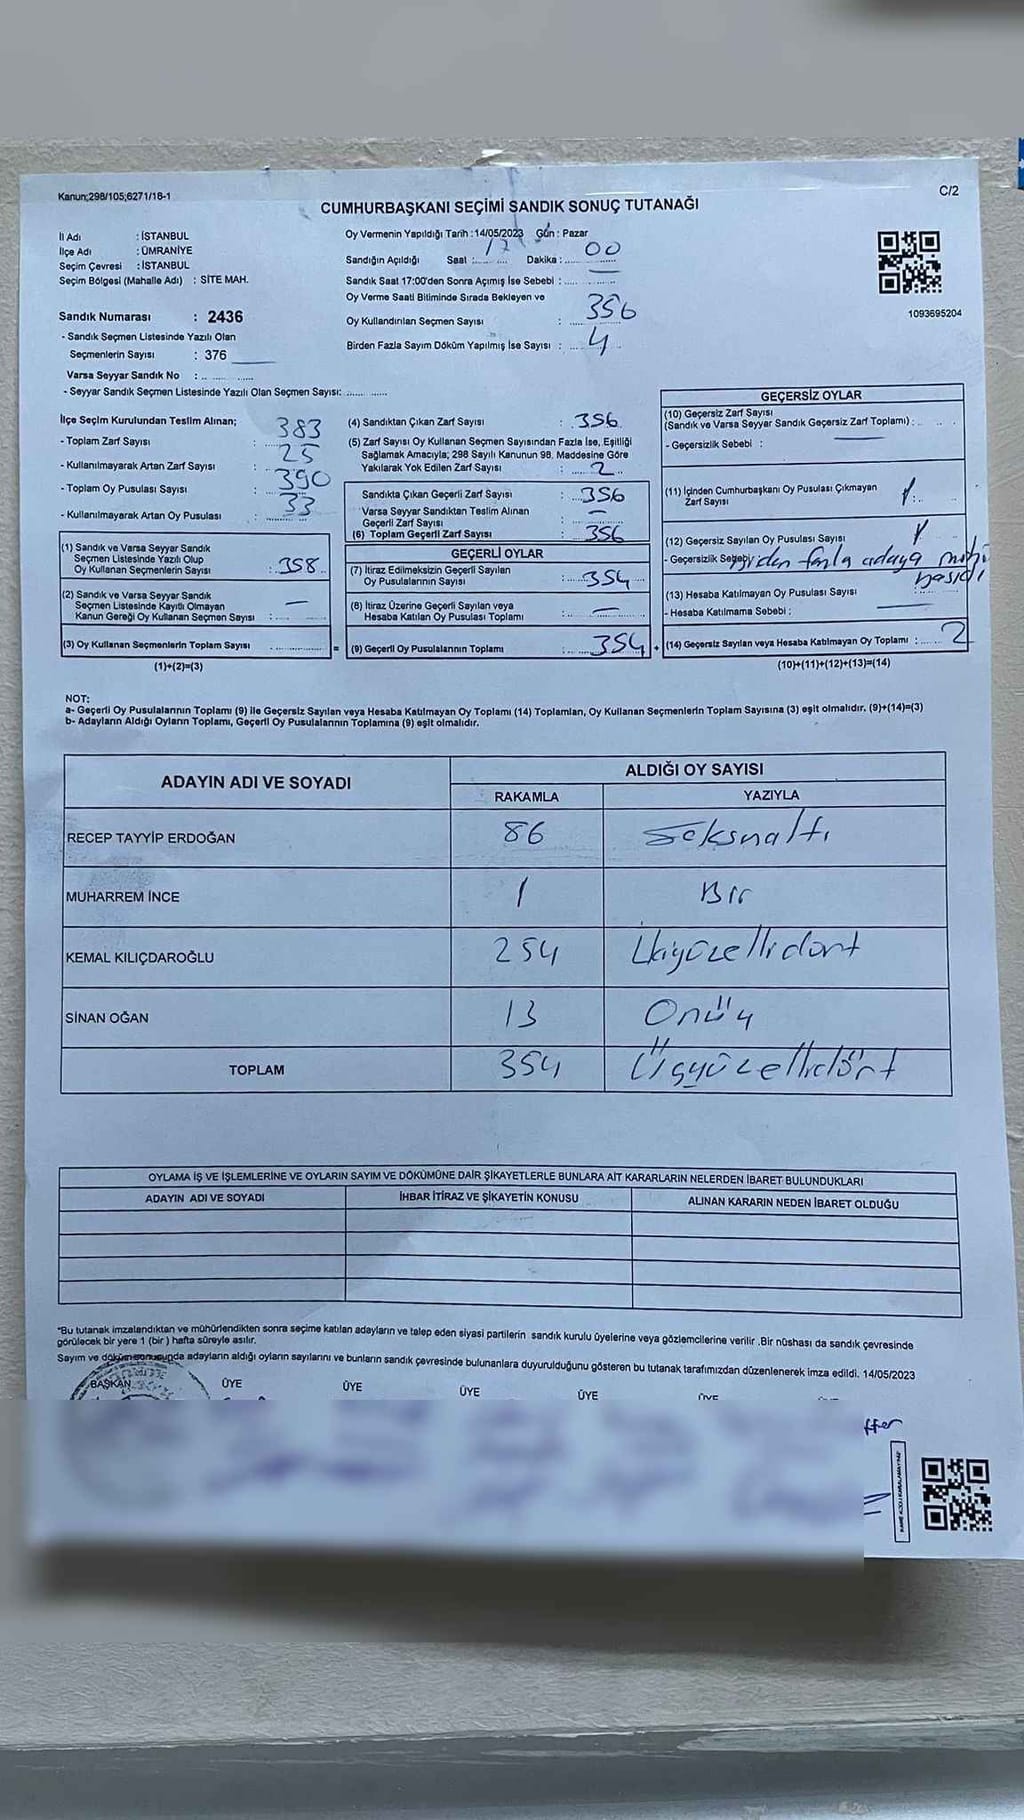 Kanun;298/105;6271/18-1
C/2
CUMHURBAŞKANI SEÇİMİ SANDIK SONUÇ TUTANAĞI
İl Adı : İSTANBUL
İlçe Adı : ÜMRANİYE
Seçim Çevresi : İSTANBUL
Seçim Bölgesi (Mahalle Adı) : SİTE MAH.
Sandık Numarası : 2436
- Sandık Seçmen Listesinde Yazılı Olan
Seçmenlerin Sayısı : 376
Varsa Seyyar Sandık No : .. ......
- Seyyar Sandık Seçmen Listesinde Yazılı Olan Seçmen Sayısı: ...... ......
Oy Vermenin Yapıldığı Tarih :14/05/2023 Gün : Pazar
Sandığın Açıldığı Saat : 17 Dakika : 00
Sandık Saat 17:00'den Sonra Açımış İse Sebebi : ...... ......
Oy Verme Saati Bitiminde Sırada Bekleyen ve
Oy Kullandırılan Seçmen Sayısı : 356
Birden Fazla Sayım Döküm Yapılmış İse Sayısı : 4
1093695204
İlçe Seçim Kurulundan Teslim Alınan;
- Toplam Zarf Sayısı : 383
- Kullanılmayarak Artan Zarf Sayısı : 25
- Toplam Oy Pusulası Sayısı : 390
- Kullanılmayarak Artan Oy Pusulası : 33
(1) Sandık ve Varsa Seyyar Sandık
Seçmen Listesinde Yazılı Olup
Oy Kullanan Seçmenlerin Sayısı : 358
(2) Sandık ve Varsa Seyyar Sandık
Seçmen Listesinde Kayıtlı Olmayan
Kanun Gereği Oy Kullanan Seçmen Sayısı : —
(3) Oy Kullanan Seçmenlerin Toplam Sayısı .............. =
(1)+(2)=(3)
(4) Sandıktan Çıkan Zarf Sayısı : 356
(5) Zarf Sayısı Oy Kullanan Seçmen Sayısından Fazla İse, Eşitliği
Sağlamak Amacıyla; 298 Sayılı Kanunun 98. Maddesine Göre
Yakılarak Yok Edilen Zarf Sayısı : 2
Sandıkta Çıkan Geçerli Zarf Sayısı : 356
Varsa Seyyar Sandıktan Teslim Alınan
Geçerli Zarf Sayısı : —
(6) Toplam Geçerli Zarf Sayısı : 356
GEÇERLİ OYLAR
(7) İtiraz Edilmeksizin Geçerli Sayılan
Oy Pusulalarının Sayısı : 354
(8) İtiraz Üzerine Geçerli Sayılan veya
Hesaba Katılan Oy Pusulası Toplamı : —
(9) Geçerli Oy Pusulalarının Toplamı : 354 +
GEÇERSİZ OYLAR
(10) Geçersiz Zarf Sayısı
(Sandık ve Varsa Seyyar Sandık Geçersiz Zarf Toplamı) : —
- Geçersizlik Sebebi :
(11) İçinden Cumhurbaşkanı Oy Pusulası Çıkmayan
Zarf Sayısı : 1
(12) Geçersiz Sayılan Oy Pusulası Sayısı 1
- Geçersizlik Sebebi: birden fazla adaya mühür
basıldı
(13) Hesaba Katılmayan Oy Pusulası Sayısı : —
- Hesaba Katılmama Sebebi :
(14) Geçersiz Sayılan veya Hesaba Katılmayan Oy Toplamı : 2
(10)+(11)+(12)+(13)=(14)
NOT:
a- Geçerli Oy Pusulalarının Toplamı (9) ile Geçersiz Sayılan veya Hesaba Katılmayan Oy Toplamı (14) Toplamları, Oy Kullanan Seçmenlerin Toplam Sayısına (3) eşit olmalıdır. (9)+(14)=(3)
b- Adayların Aldığı Oyların Toplamı, Geçerli Oy Pusulalarının Toplamına (9) eşit olmalıdır.
ADAYIN ADI VE SOYADI ALDIĞI OY SAYISI
RAKAMLA YAZIYLA
RECEP TAYYİP ERDOĞAN 86 Seksnaltı
MUHARREM İNCE 1 Bir
KEMAL KILIÇDAROĞLU 254 İkiyüzellidört
SİNAN OĞAN 13 Onüç
TOPLAM 354 Üçyüzellidört
OYLAMA İŞ VE İŞLEMLERİNE VE OYLARIN SAYIM VE DÖKÜMÜNE DAİR ŞİKAYETLERLE BUNLARA AİT KARARLARIN NELERDEN İBARET BULUNDUKLARI
ADAYIN ADI VE SOYADI İHBAR İTİRAZ VE ŞİKAYETİN KONUSU ALINAN KARARIN NEDEN İBARET OLDUĞU
*Bu tutanak imzalandıktan ve mühürlendikten sonra seçime katılan adayların ve talep eden siyasi partilerin sandık kurulu üyelerine veya gözlemcilerine verilir .Bir nüshası da sandık çevresinde
görülecek bir yere 1 (bir ) hafta süreyle asılır.
Sayım ve döküm sonucunda adayların aldığı oyların sayılarını ve bunların sandık çevresinde bulunanlara duyurulduğunu gösteren bu tutanak tarafımızdan düzenlenerek imza edildi. 14/05/2023
BAŞKAN ÜYE ÜYE ÜYE ÜYE ÜYE